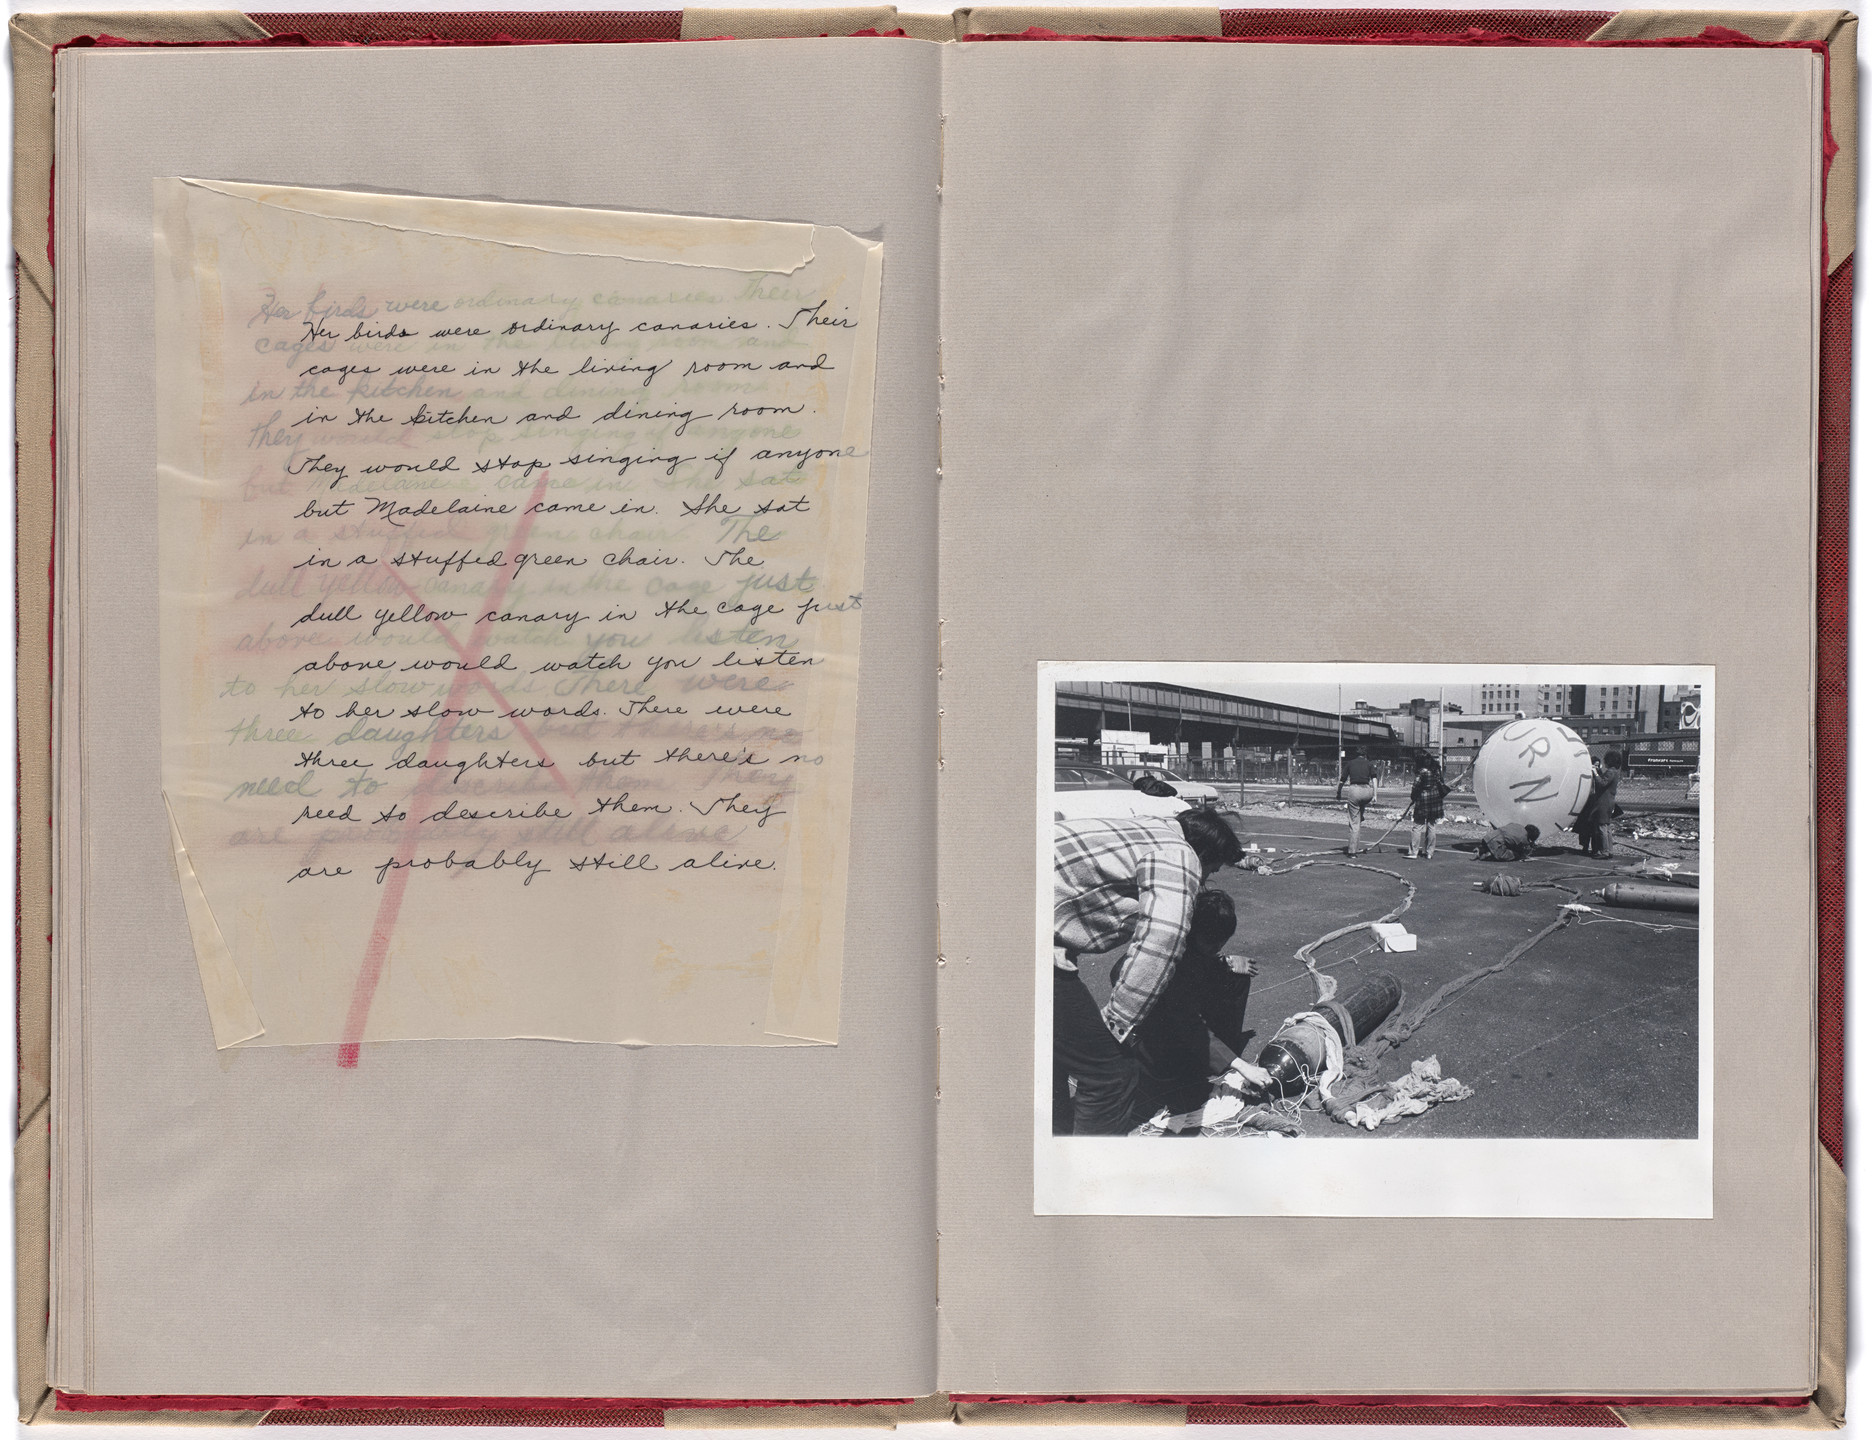 Her birds were ordinary canaries. Their
Her birds were ordinary canaries. Their
cages were in the living room and
cages were in the living room and
in the kitchen and dining room
in the kitchen and dining room.
they would stop singing if anyone
They would stop singing if anyone
but Madelaine came in. She sat
but Madelaine came in. She sat
in a stuffed green chair. The
in a stuffed green chair. The
dull yellow canary in the cage just
dull yellow canary in the cage just
above would watch you listen
above would watch you listen
to her slow words There were
to her slow words. There were
three daughters but there's no
three daughters but there's no
need to describe them They
need to describe them. They
are probably still alive
are probably still alive.
URN